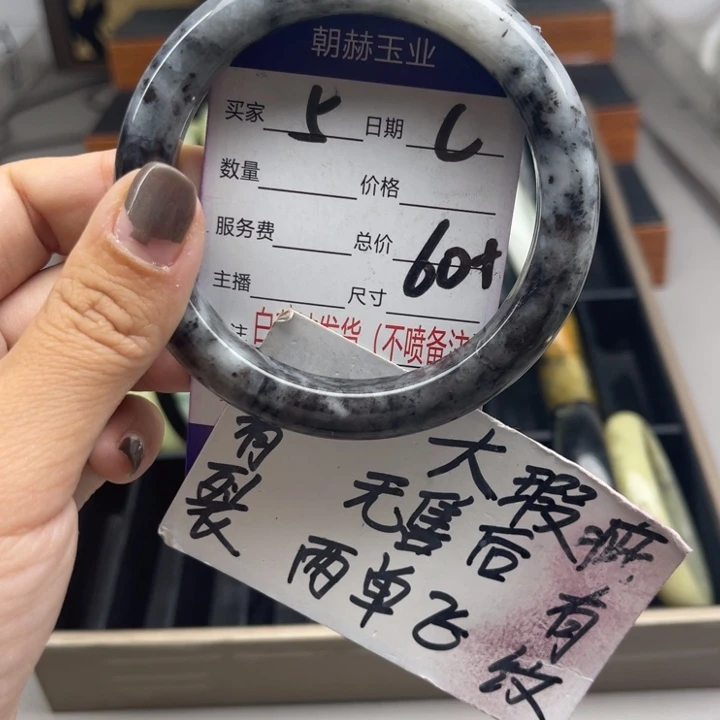 朝赫玉业
买家 5 日期 6
数量 价格
服务费 总价
60+
主播 尺寸
注 白 发货（不喷备注
大瑕疵有纹
有裂
无售后
两单飞